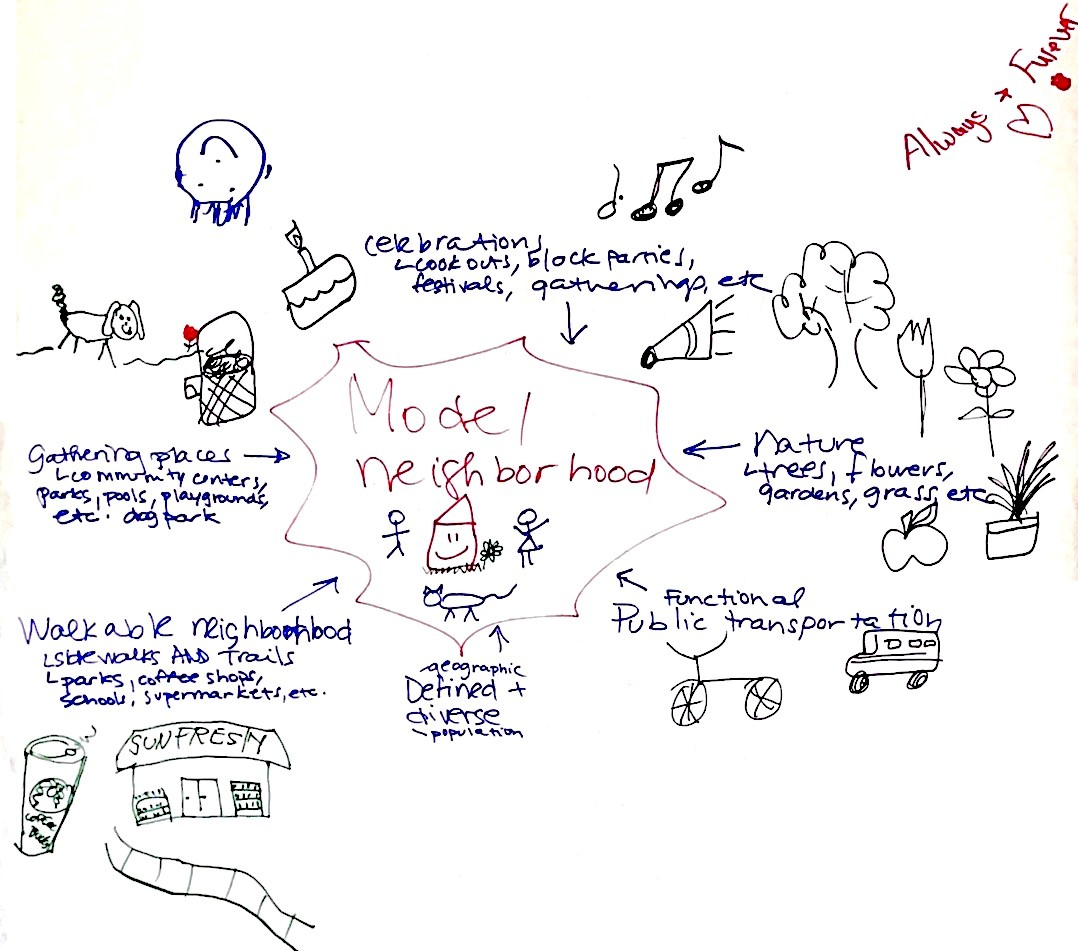 Always * Forever
celebrations
↳cookouts, block parties,
festivals, gatherings, etc
Model
neighborhood
Gathering places
↳community centers,
parks, pools, playgrounds,
etc. dog park
Nature
↳trees, flowers,
gardens, grass, etc
Functional
Public transportation
Walkable neighborhood
↳sidewalks AND Trails
↳parks, coffee shops,
schools, supermarkets, etc.
-geographic
Defined +
diverse
-population
SUNFRESH
coffee